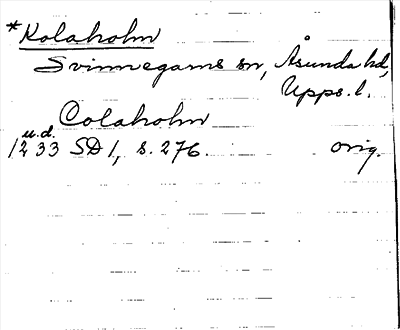 *Kolaholm
Svinnegarns sn, Åsunda hd,
Upps. l.
Colaholm
u.d.
1233 SD 1, s. 276. orig.